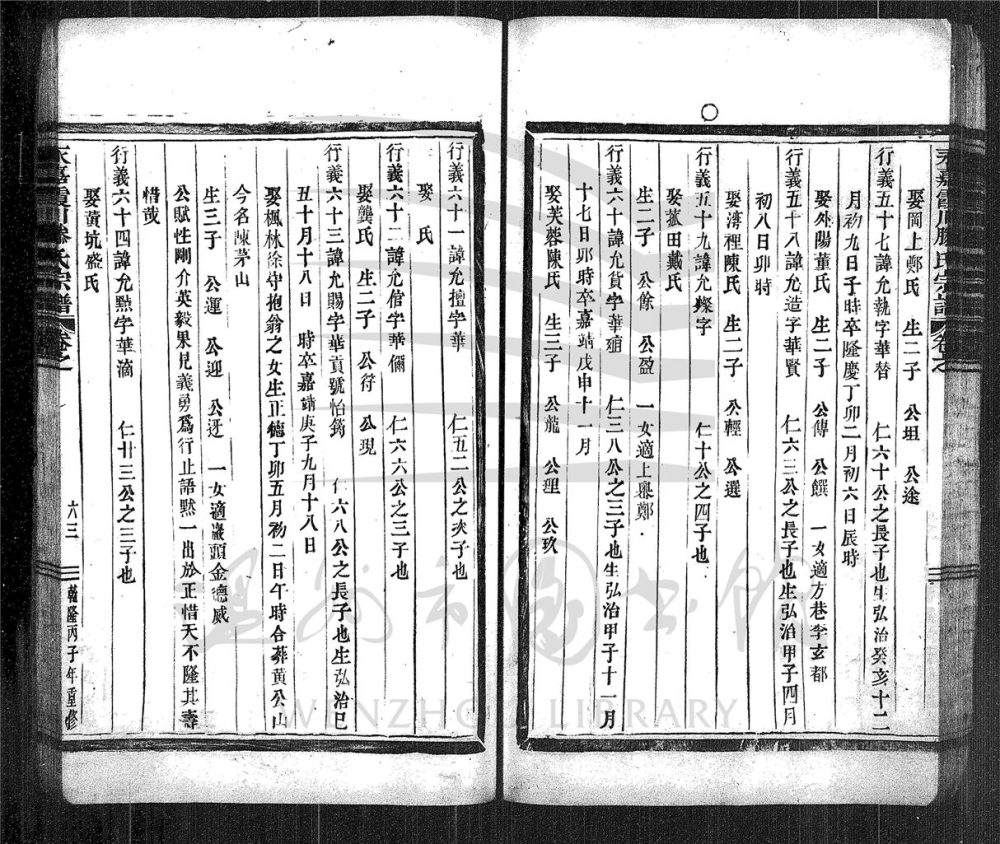 永嘉霞川滕氏宗譜 卷之
娶岡上鄭氏 生二子 公坦 公途
行義五十七諱允執字華替 仁六十公之長子也生弘治癸亥十二
月初九日子時卒隆慶丁卯二月初六日辰時
娶外陽董氏 生二子 公傳 公饌 一女適方巷李玄都
行義五十八諱允造字華賢 仁六三公之長子也生弘治甲子四月
初八日卯時
娶灣裡陳氏 生二子 公輕 公選
行義五十九諱允燦字 仁十公之四子也
娶菰田戴氏
生二子 公餘 公盈 一女適上鄭
行義六十諱允貨字華 仁三八公之三子也生弘治甲子十一月
十七日卯時卒嘉靖戊申十一月
娶芙蓉陳氏 生三子 公龍 公理 公玖
行義六十一諱允擅字華 仁五二公之次子也
娶 氏
行義六十二諱允信字華儞 仁六六公之三子也
娶龔氏 生二子 公符 公現
行義六十三諱允賜字華貢號怡筠 仁六八公之長子也生弘治己
五十月十八日 時卒嘉靖庚子九月十八日
娶楓林徐守抱翁之女生正德丁卯五月初二日午時合葬黃公山
今名陳茅山
生三子 公運 公迎 公迓 一女適巖頭金德威
公賦性剛介英毅果見義勇爲行止語默一出於正惜天不隆其壽
惜哉
行義六十四諱允點字華滴 仁廿三公之三子也
娶黄坑盛氏
永嘉霞川滕氏宗譜 卷之一 六三 乾隆丙子年重修
溫州市圖書館
WENZHOU LIBRARY